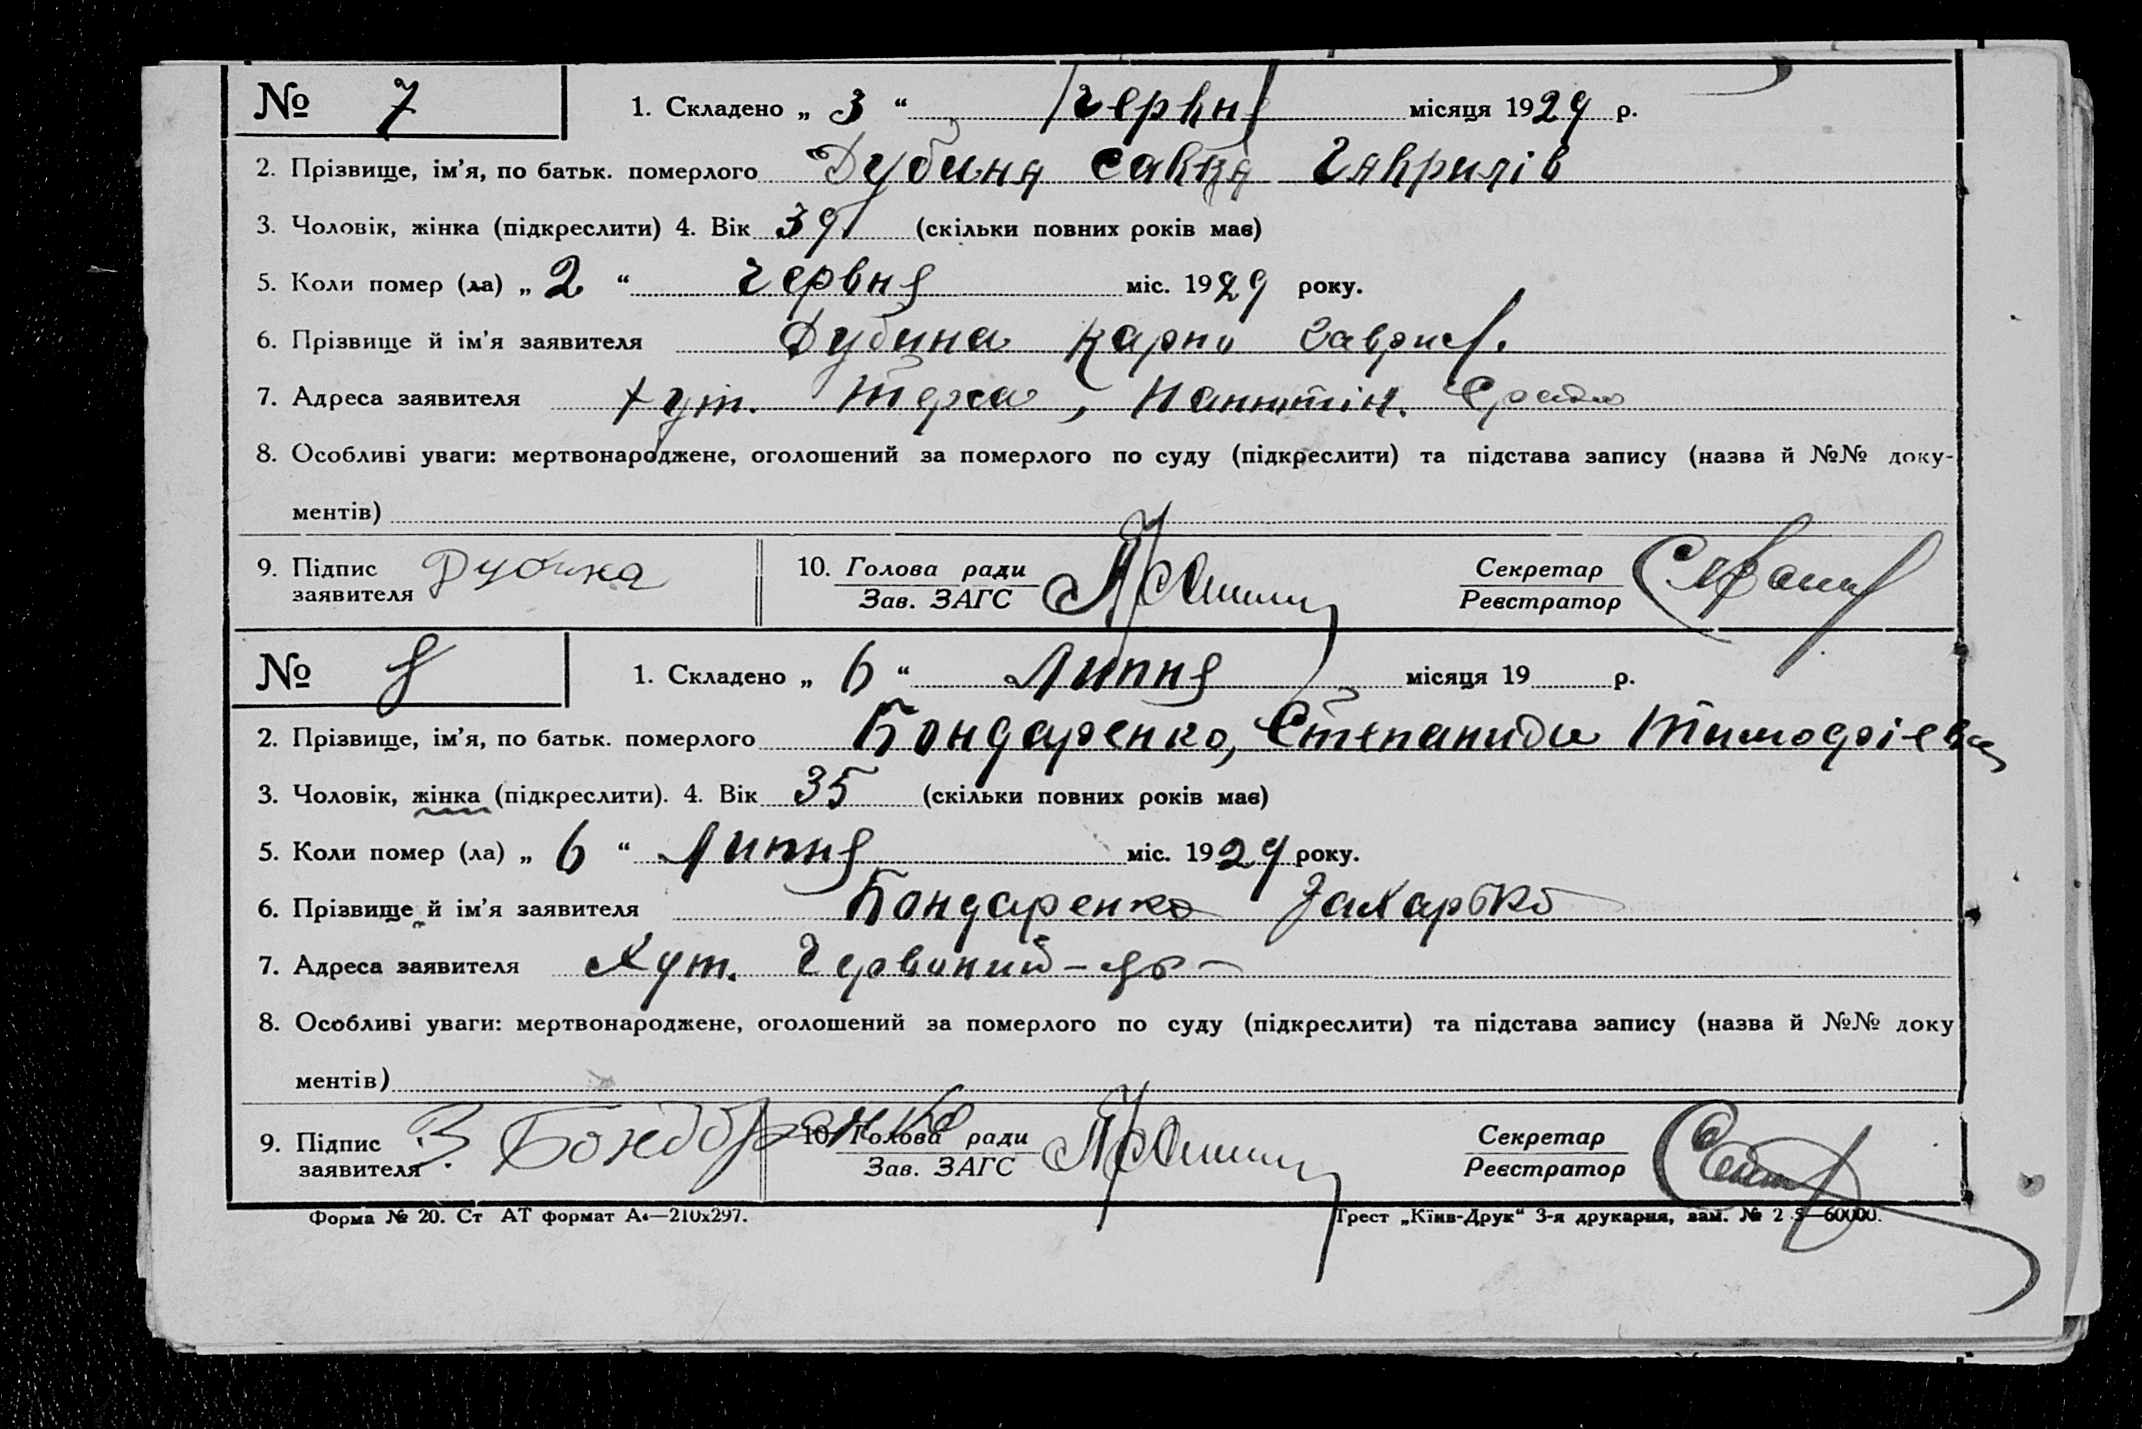 № 7 1. Складено „ 3 “ червня місяця 1929 р.
2. Прізвище, ім’я, по батьк. померлого Дубина Савка Гаврилів
3. Чоловік, жінка (підкреслити) 4. Вік 39 (скільки повних років має)
5. Коли помер (ла) „ 2 “ червня міс. 1929 року.
6. Прізвище й ім’я заявителя Дубина Карпо Гаврил.
7. Адреса заявителя хут. Терса,
8. Особливі уваги: мертвонароджене, оголошений за померлого по суду (підкреслити) та підстава запису (назва й №№ доку-
ментів)
9. Підпис заявителя Дубина 10. Голова ради Зав. ЗАГС Секретар Реєстратор
№ 8 1. Складено „ 6 “ Липня місяця 19 р.
2. Прізвище, ім’я, по батьк. померлого Бондаренко, Степанида Тимофіева
3. Чоловік, жінка (підкреслити). 4. Вік 35 (скільки повних років має)
5. Коли помер (ла) „ 6 “ Липня міс. 1929 року.
6. Прізвище й ім’я заявителя Бондаренко Захарько
7. Адреса заявителя Хут. Червоний
8. Особливі уваги: мертвонароджене, оголошений за померлого по суду (підкреслити) та підстава запису (назва й №№ доку
ментів)
9. Підпис заявителя З. Бондаренко 10. Голова ради Зав. ЗАГС Секретар Реєстратор
Форма № 20. Ст АТ формат А4—210х297. Трест „Київ-Друк“ 3-я друкарня, зам. № 2 5—60000.